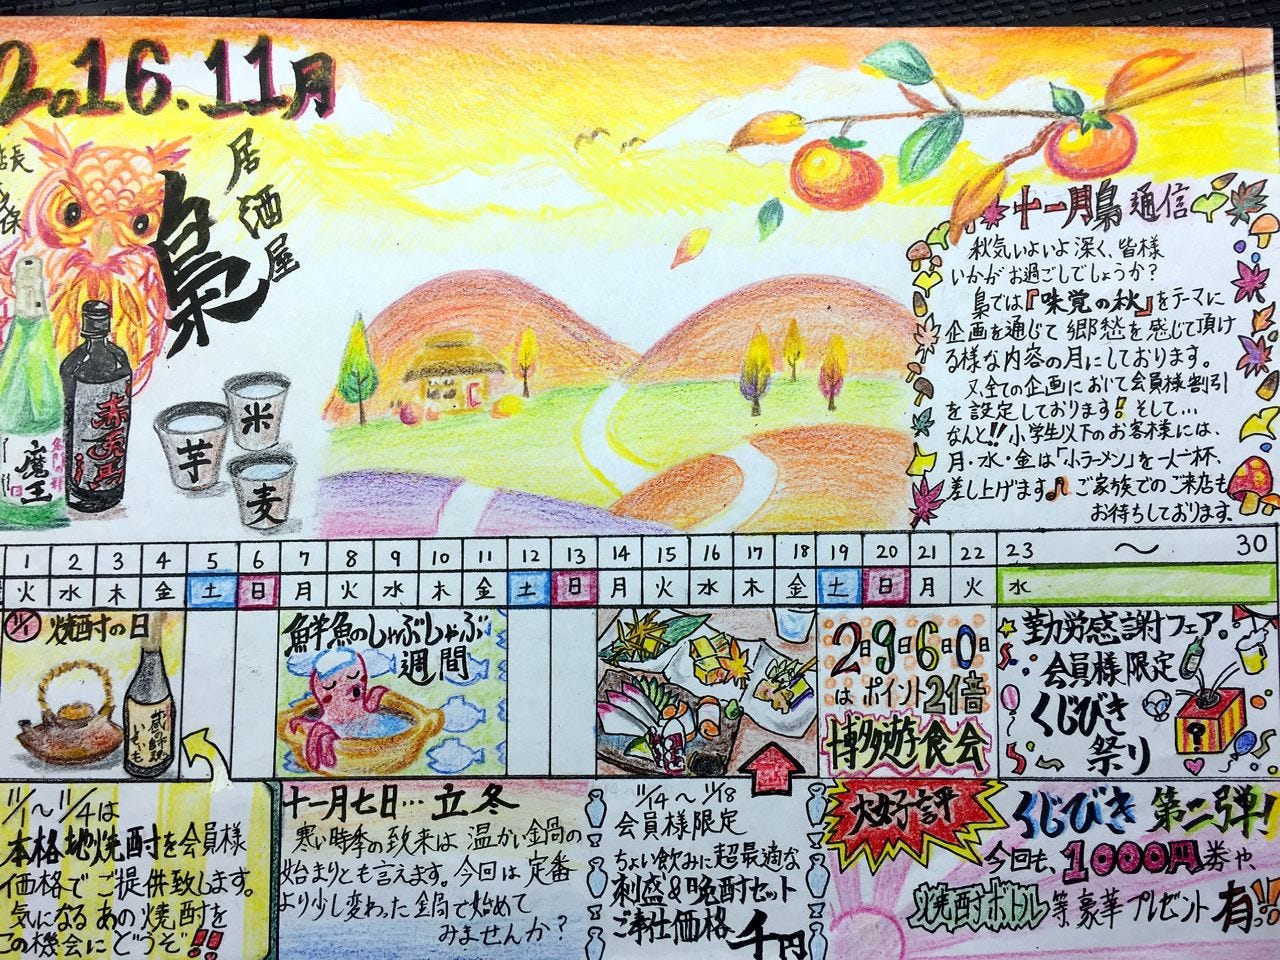 2016.11月
居酒屋
梟
店長
魔王
赤兎馬
米
芋
麦
十一月梟通信
秋気いよいよ深く、皆様
いかがお過ごしでしょうか?
梟では『味覚の秋』をテーマに
企画を通じて郷愁を感じて頂け
る様な内容の月にしております。
又、全ての企画において会員様割引
を設定しております!そして…
なんと!!小学生以下のお客様には、
月・水・金は「小ラーメン」を一人一杯、
差し上げます♪ご家族でのご来店も
お待ちしております。
1 2 3 4 5 6 7 8 9 10 11 12 13 14 15 16 17 18 19 20 21 22 23 〜 30
火 水 木 金 土 日 月 火 水 木 金 土 日 月 火 水 木 金 土 日 月 火 水
11/1 焼酎の日
鮮魚のしゃぶしゃぶ
週間
2日9日6日0日
はポイント2倍
博多遊食会
勤労感謝フェア
会員様限定
くじびき
祭り
?
11/1〜11/4は
本格地焼酎を会員様
価格でご提供致します。
気になるあの焼酎を
この機会にどうぞ!!
十一月七日…立冬
寒い時季の到来は温かい鍋の
始まりとも言えます。今回は定番
より少し変わった鍋で始めて
みませんか?
11/14〜11/18
会員様限定
ちょい飲みに超最適な
刺盛&晩酌セット
ご奉仕価格 千円
大好評
くじびき第二弾!
今回も、1000円券や、
焼酎ボトル等豪華プレゼント有!!